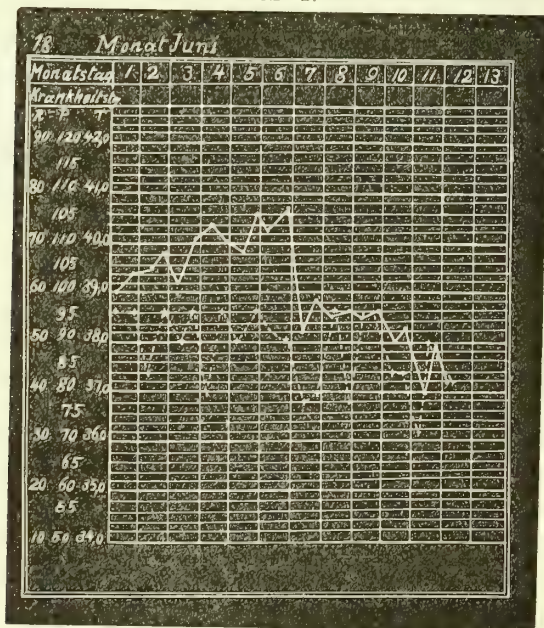 18 Monat Juni
Monatstag 1 2 3 4 5 6 7 8 9 10 11 12 13
Krankheitstg
R P T
90 120 42,0
115
80 110 41,0
105
70 110 40,0
105
60 100 39,0
95
50 90 38,0
85
40 80 37,0
75
30 70 36,0
65
20 60 35,0
55
10 50 34,0